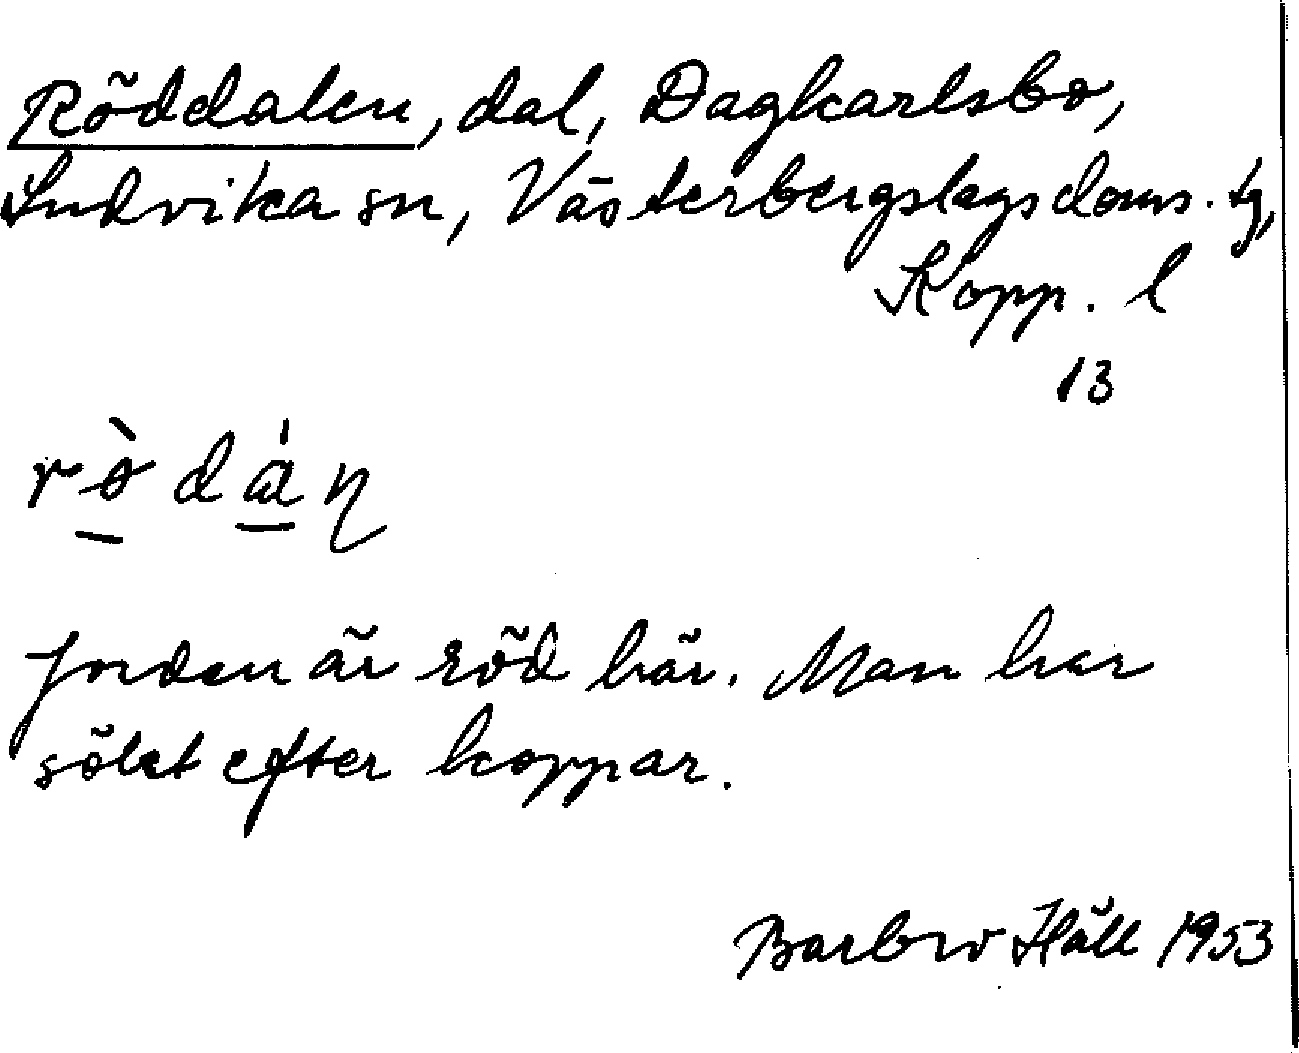 Röddalen, dal, Dagkarlsbo,
Ludvika sn, Västerbergslags doms. tg,
Kopp. l
13
rö̀dáɳ
Jorden är röd här. Man har
sökt efter koppar.
Barbro Häll 1953